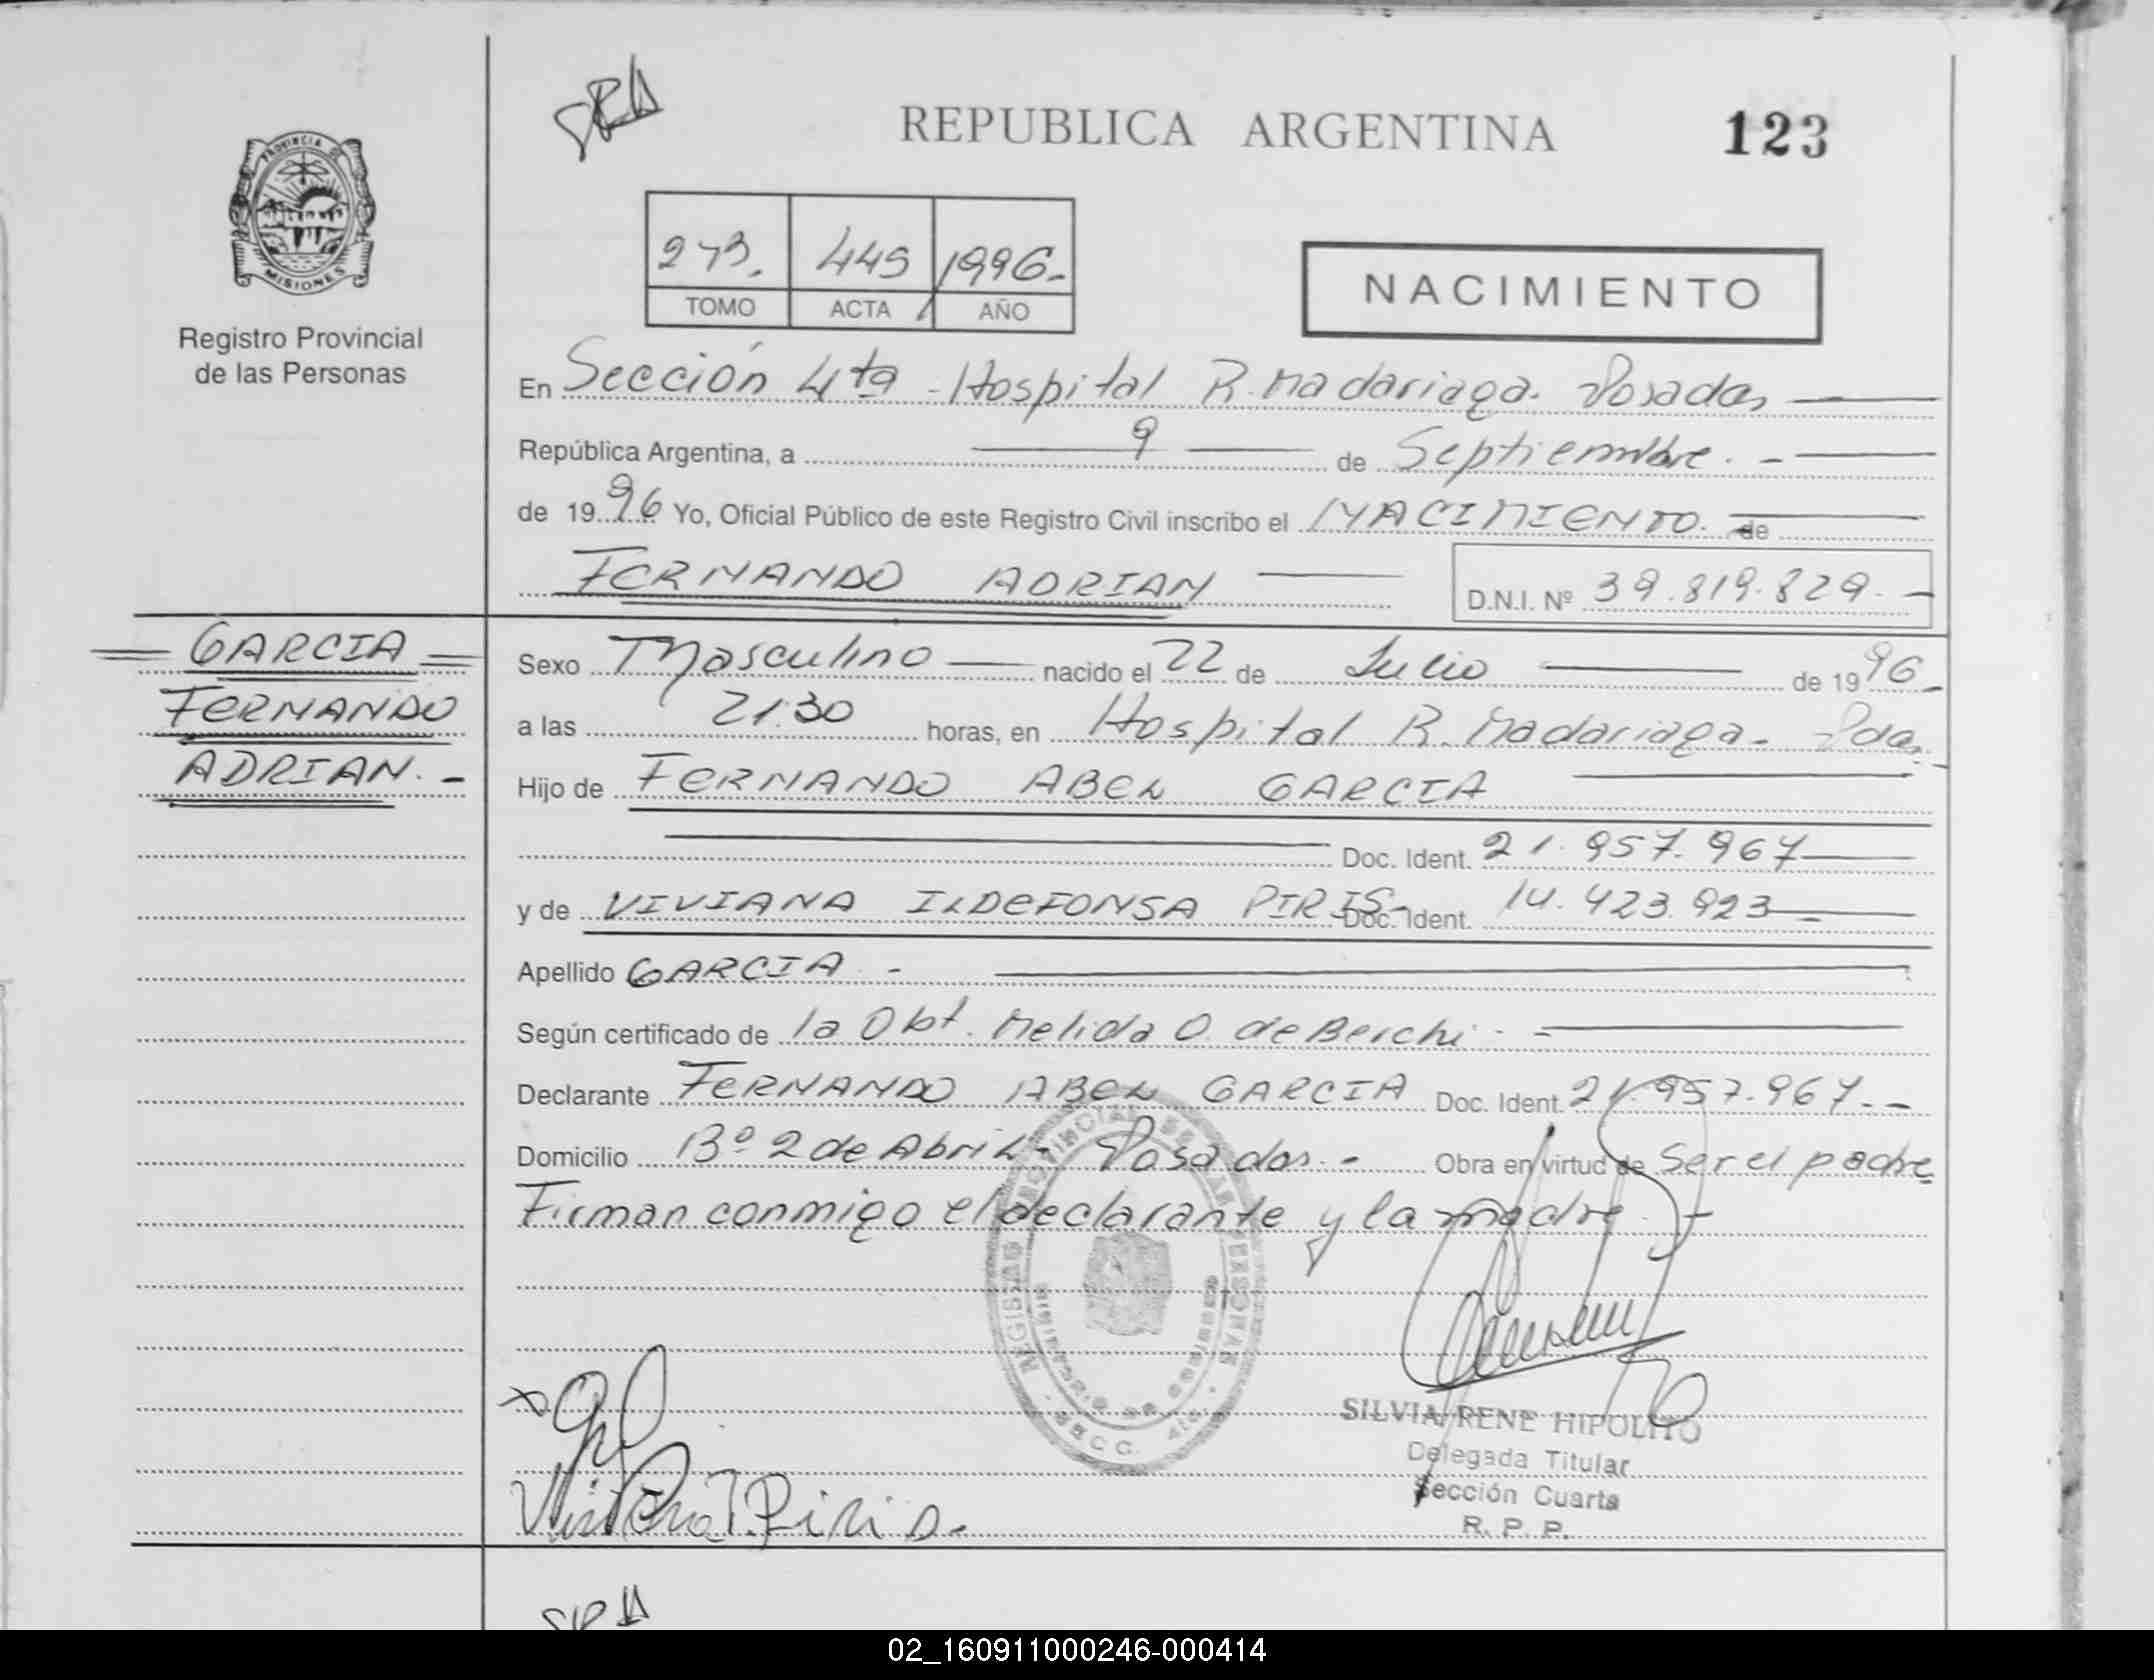 REPUBLICA ARGENTINA
123
PROVINCIA DE
MISIONES
Registro Provincial
de las Personas
273. 445 1996.-
TOMO ACTA AÑO
NACIMIENTO
En Sección 4ta - Hospital R. Madariaga. Posadas
República Argentina, a 9 de Septiembre. -
de 1996 Yo, Oficial Público de este Registro Civil inscribo el NACIMIENTO. de
FERNANDO ADRIAN D.N.I. Nº 39.819.829.-
GARCIA
FERNANDO
ADRIAN.-
Sexo Masculino nacido el 22 de Julio de 1996-
a las 21:30 horas, en Hospital R. Madariaga. Pdas.
Hijo de FERNANDO ABEL GARCIA
Doc. Ident. 21.957.967
y de VIVIANA ILDEFONSA PIRIS- Doc. Ident. 14.423.923
Apellido GARCIA. -
Según certificado de la Obt. Melida O. de Berchi. -
Declarante FERNANDO ABEL GARCIA Doc. Ident. 21.957.967.-
Domicilio Bº 2 de Abril- Posadas. - Obra en virtud de Ser el padre
Firman conmigo el declarante y la madre. -
SILVIA RENE HIPOLITO
Delegada Titular
Sección Cuarta
R. P. P.
02_160911000246-000414